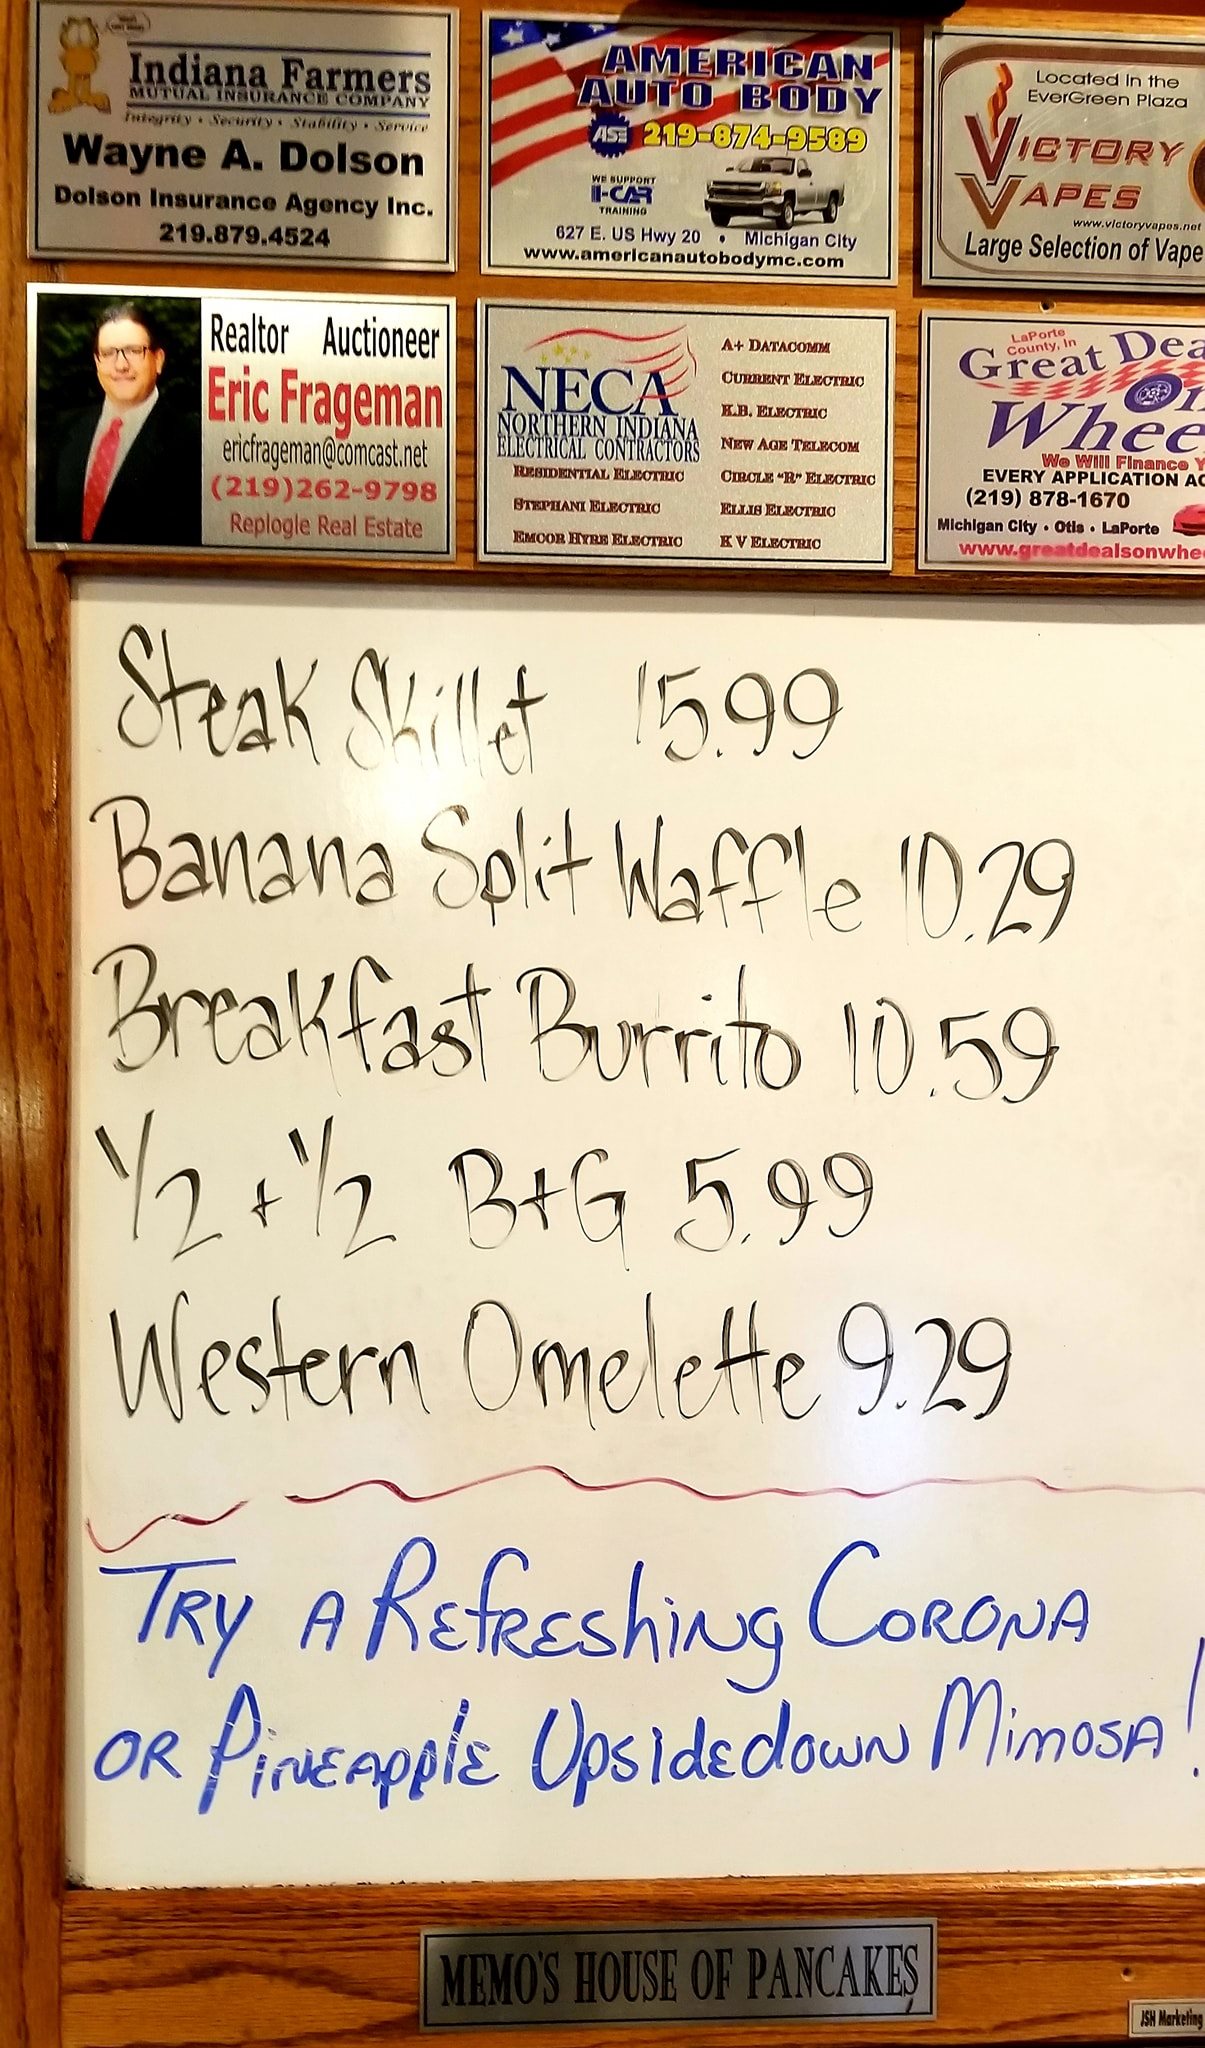 Indiana Farmers
MUTUAL INSURANCE COMPANY
Integrity • Security • Stability • Service
Wayne A. Dolson
Dolson Insurance Agency Inc.
219.879.4524
AMERICAN
AUTO BODY
ASE 219-874-9589
WE SUPPORT
I-CAR
TRAINING
627 E. US Hwy 20 • Michigan City
www.americanautobodymc.com
Located in the
EverGreen Plaza
VICTORY
VAPES
www.victoryvapes.net
Large Selection of Vape
Realtor Auctioneer
Eric Frageman
ericfrageman@comcast.net
(219)262-9798
Replogle Real Estate
NECA
NORTHERN INDIANA
ELECTRICAL CONTRACTORS
RESIDENTIAL ELECTRIC
STEPHANI ELECTRIC
EMCOR HYRE ELECTRIC
A+ DATACOMM
CURRENT ELECTRIC
K.B. ELECTRIC
NEW AGE TELECOM
CIRCLE "R" ELECTRIC
ELLIS ELECTRIC
K V ELECTRIC
LaPorte
County, In
Great Dea
On
Whee
We Will Finance Y
EVERY APPLICATION AC
(219) 878-1670
Michigan City • Otis • LaPorte
www.greatdealsonwhee
Steak Skillet 15.99
Banana Split Waffle 10.29
Breakfast Burrito 10.59
1/2 + 1/2 B+G 5.99
Western Omelette 9.29
TRY A REfRESHiNg CORONA
OR PiNEAPPlE UpsidEdowN MimosA!
MEMO'S HOUSE OF PANCAKES
JSH Marketing